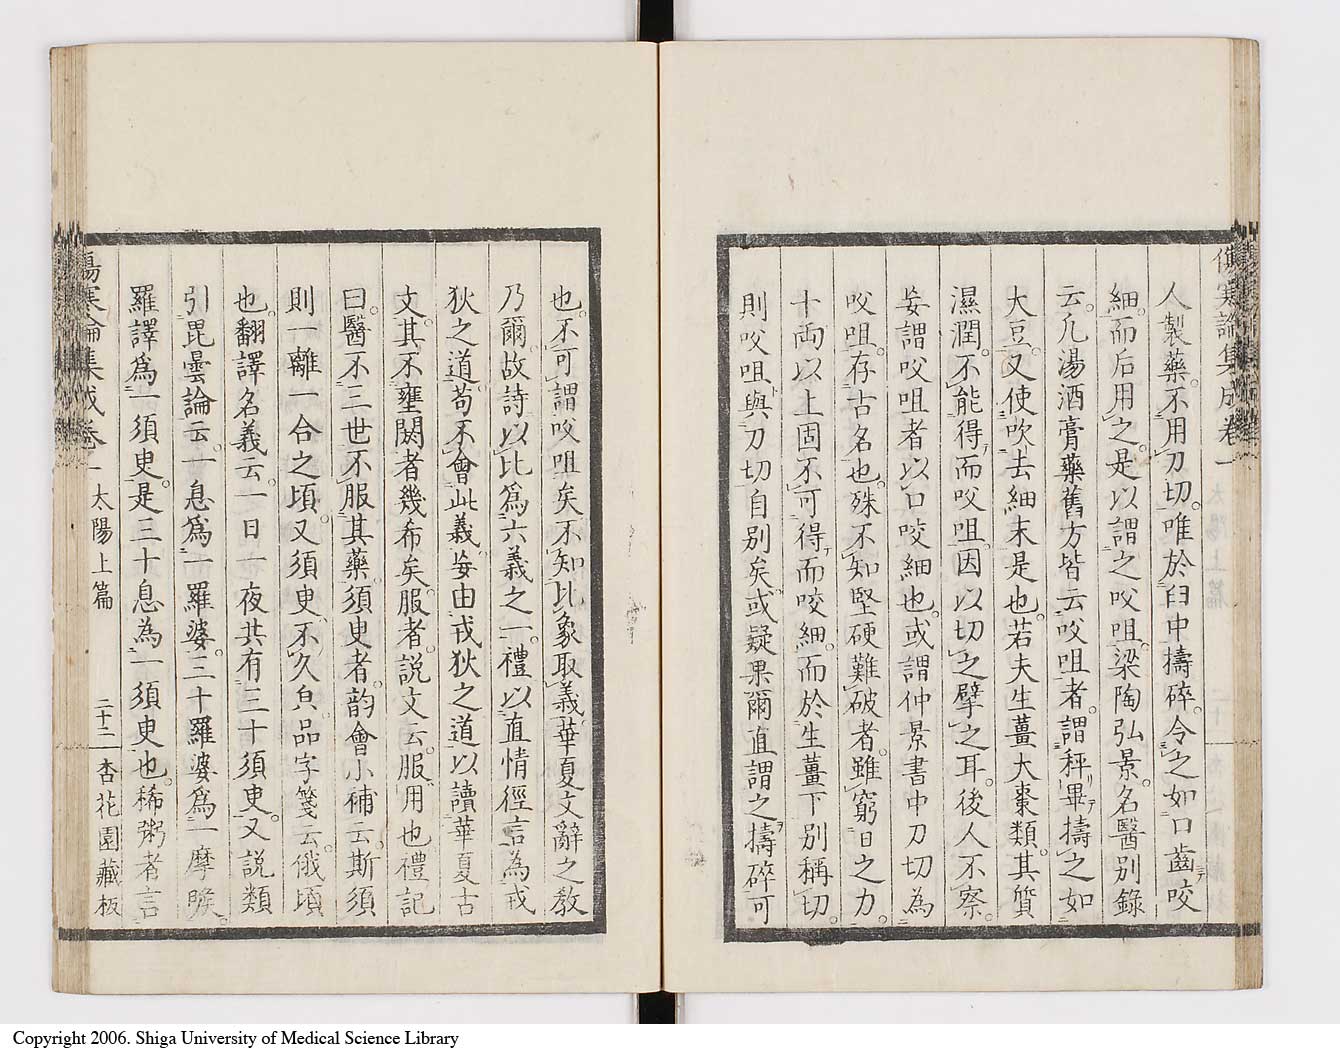 傷寒論集成卷一
人製藥。不用刀切。唯於臼中擣碎。令之如口齒咬
細。而后用之。是以謂之咬咀。梁陶弘景。名醫別錄
云。凢湯酒膏藥舊方皆云咬咀者。謂秤畢擣之如
大豆。又使吹去細末是也。若夫生薑大棗類。其質
濕潤。不能得而咬咀。因以切之擘之耳。後人不察。
妄謂咬咀者以口咬細也。或謂仲景書中刀切為
咬咀。存古名也。殊不知堅硬難破者。雖窮日之力。
十兩以上固不可得而咬細。而於生薑下別稱切。
則咬咀與刀切自別矣。或疑果爾直謂之擣碎可
也。不可謂咬咀矣。不知比象取義。華夏文辭之教
乃爾。故詩以比爲六義之一。禮以直情徑言為戎
狄之道。苟不會此義。妄由戎狄之道以讀華夏古
文。其不壅閼者幾希矣。服者。説文云。服。用也禮記
曰。醫不三世不服其藥。須臾者。韵會小補云。斯須
則一離一合之頃。又須臾。不久皃。品字箋云。俄頃
也。翻譯名義云。一日一夜共有三十須臾。又説類
引毘曇論云。一息爲一羅婆。三十羅婆爲一摩睺
羅譯爲一須臾。是三十息為一須臾也。稀粥者言
傷寒論集成卷一 太陽上篇 二十二 杏花園藏板
Copyright 2006. Shiga University of Medical Science Library